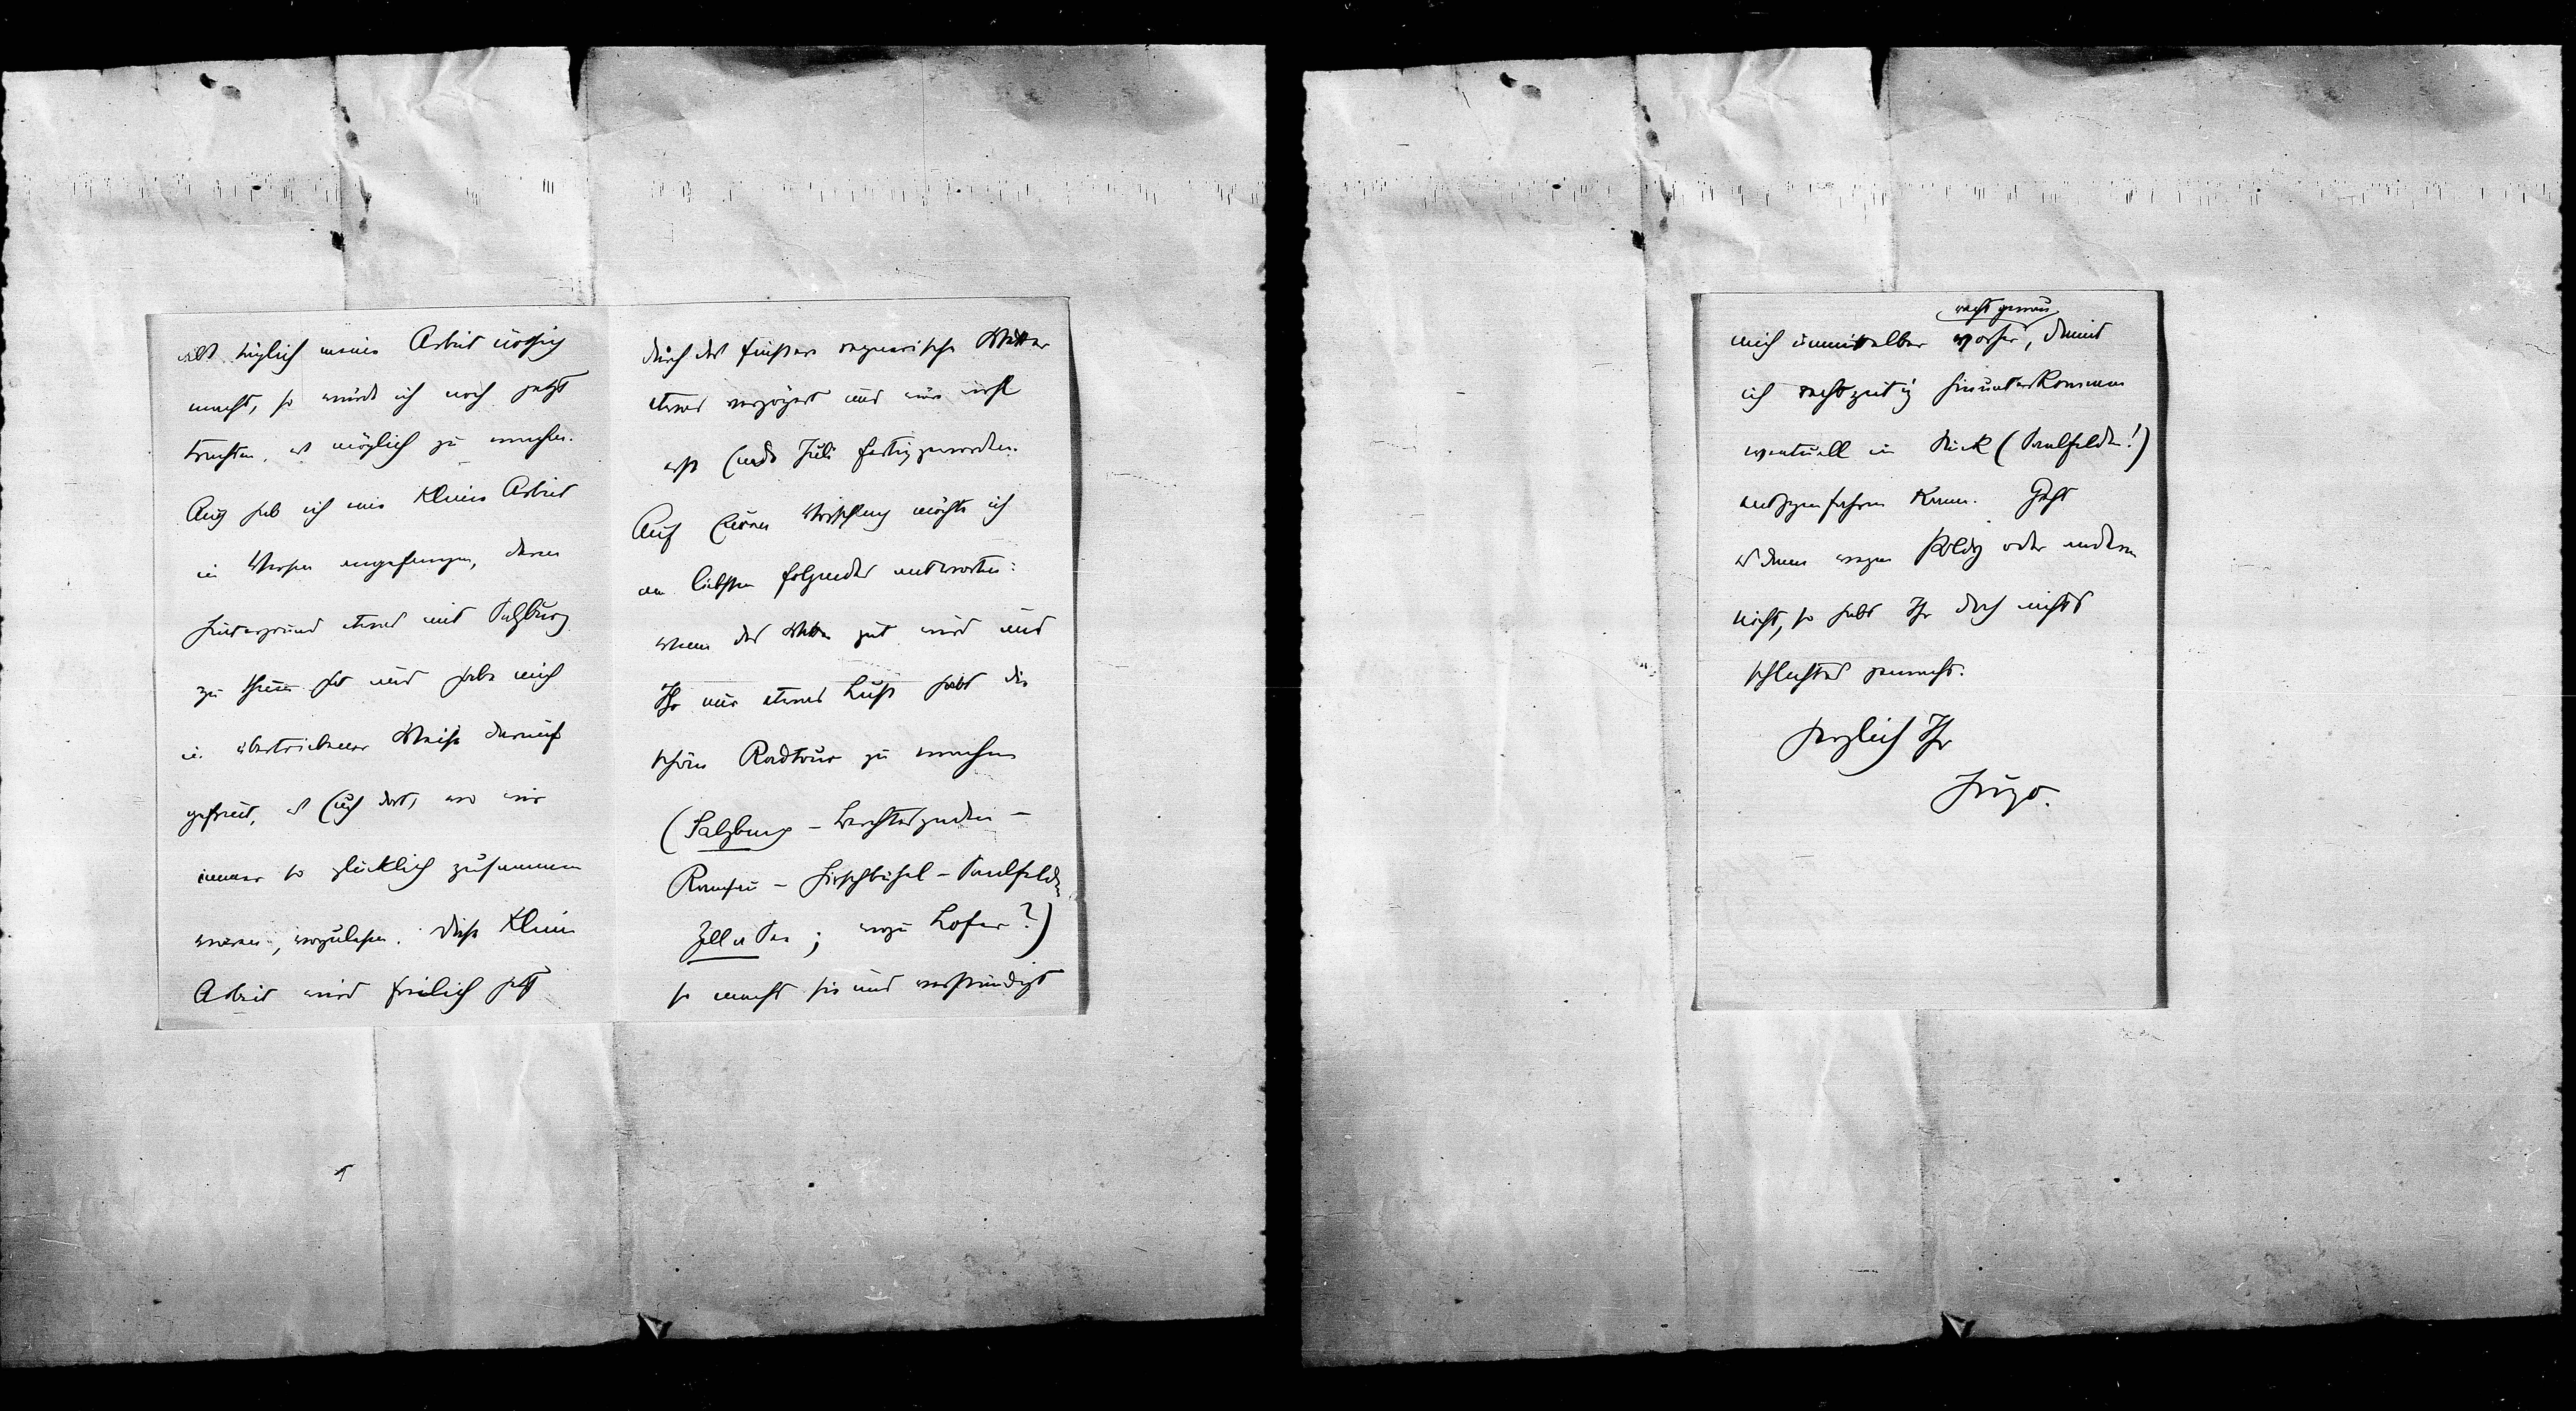 als täglich meine Arbeit nöthig
macht, so würde ich noch jetzt
trachten, es möglich zu machen.
Auch hab ich eine kleine Arbeit
in Versen angefangen, deren
Hintergrund etwas mit Salzburg
zu thuen hat und habe mich
in übertriebener Weise darauf
gefreut, es Euch dort, wo wir
immer so glücklich zusammen
waren, vorzulesen. Diese kleine
Arbeit wird freilich jetzt
durch das finstere regnerische Wetter
etwas verzögert und wäre wohl
erst Ende Juli fertiggeworden.
Auf Euren Vorschlag möchte ich
am liebsten folgendes antworten:
wenn das Wetter gut wird und
Ihr nur etwas Lust habt die
schöne Radtour zu machen
(Salzburg – Berchtesgaden –
Ramsau – Hirschbühel – Saalfelden
Zell a See; wozu Lofer?)
so macht sie und verständigt
recht genau
mich unmittelbar vorher, damit
ich rechtzeitig hinunterkommen
eventuell ein Stück (Saalfelden!)
entgegenfahren kann. Geht
es dann wegen Poldy oder anderm
nicht, so habt Ihr doch nichts
schlechtes gemacht.
Herzlich Ihr
Hugo.